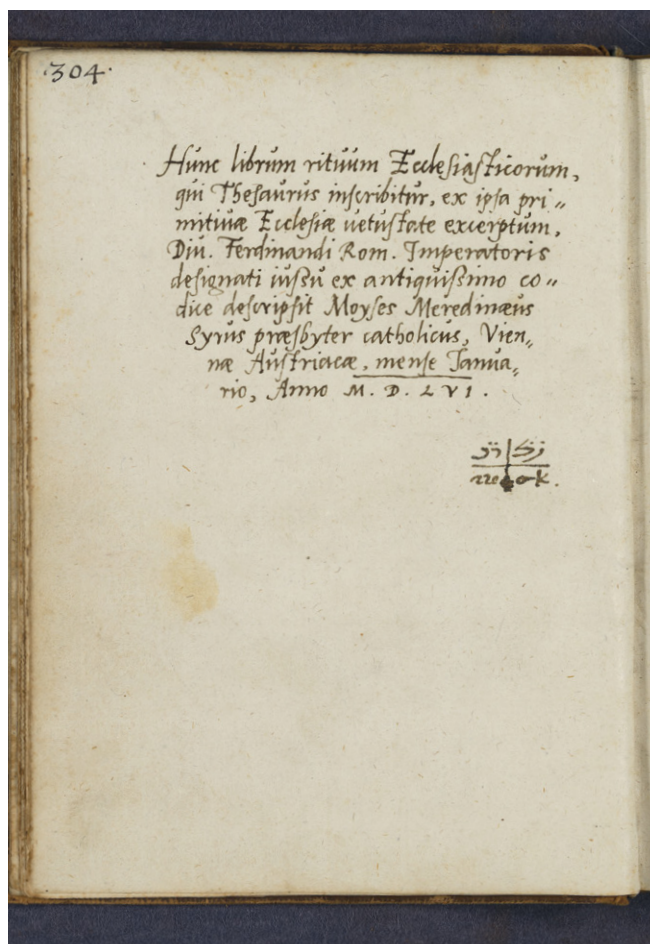 ·304·
Hunc librum rituum Ecclesiasticorum,
qui Thesaurus inscribitur, ex ipsa pri„
mitiuæ Ecclesiæ uetustate excerptum,
Diu. Ferdinandi Rom. Imperatoris
designati iussu ex antiquissimo co„
dice descripsit Moyses Meredinæus
Syrus præsbyter catholicus, Vien„
næ Austriacæ, mense Ianua„
rio, Anno M. D. LVI.